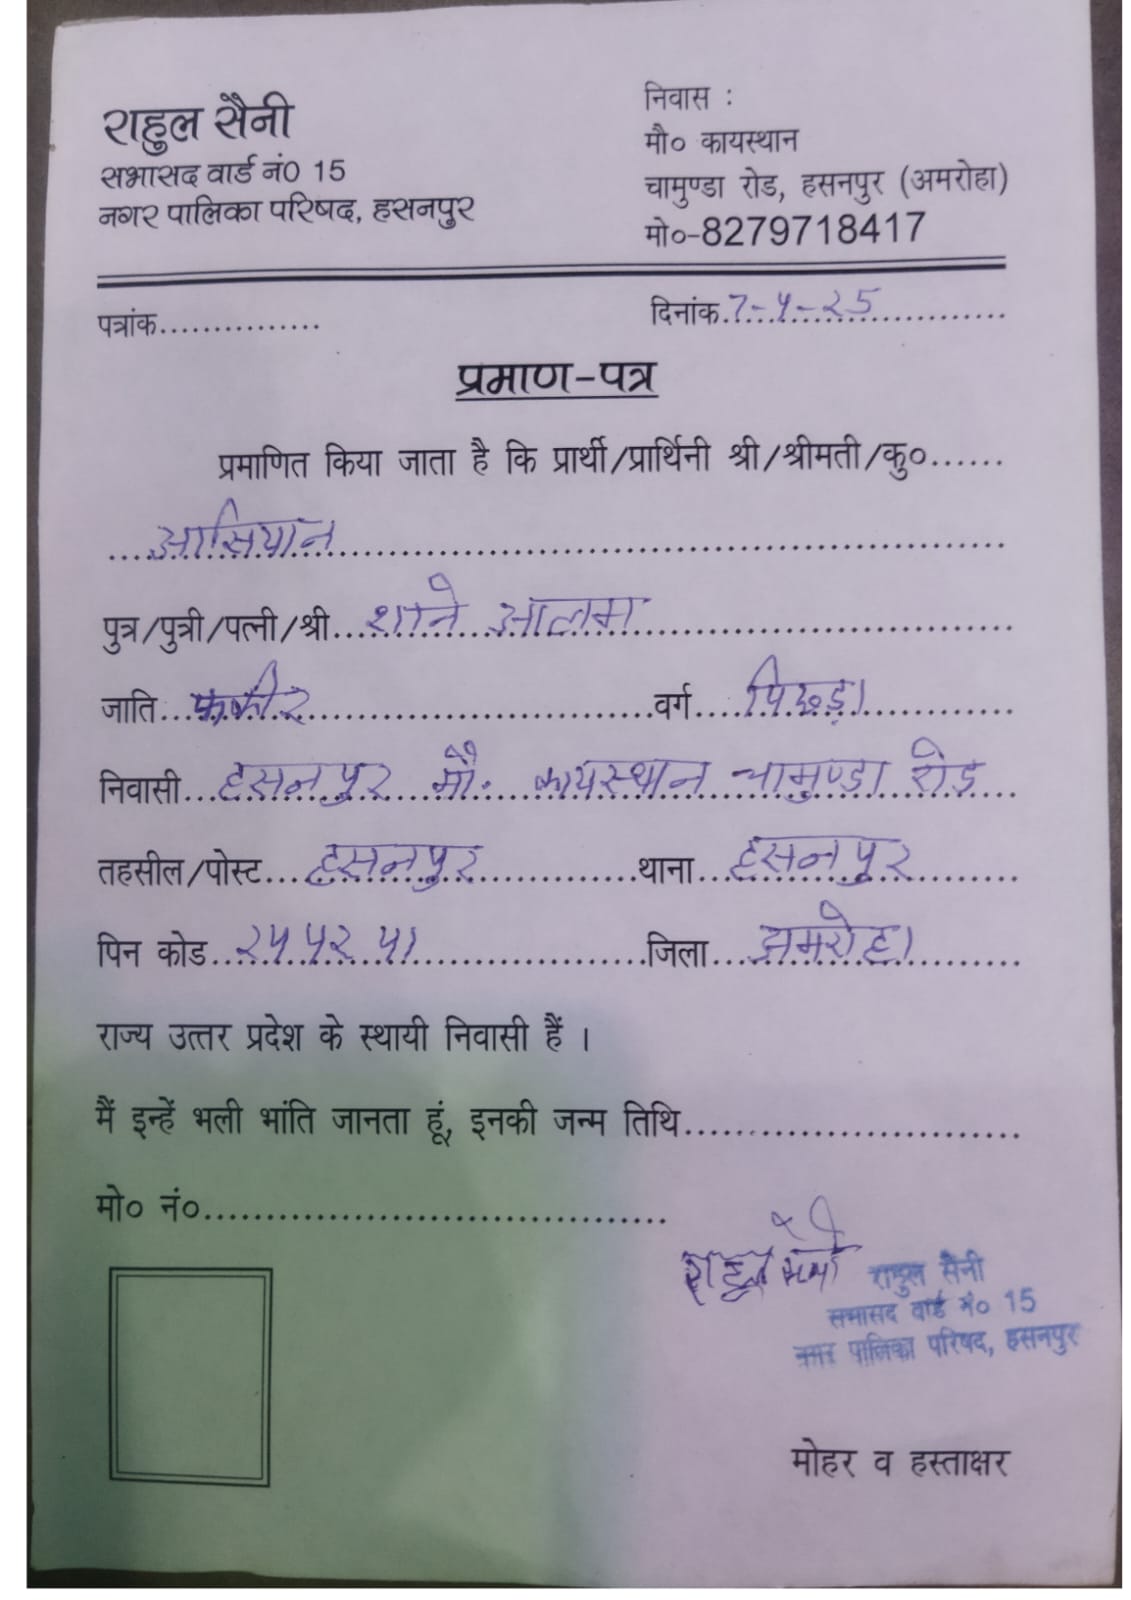 राहुल सैनी
सभासद वार्ड नं0 15
नगर पालिका परिषद, हसनपुर
निवास :
मौ० कायस्थान
चामुण्डा रोड, हसनपुर (अमरोहा)
मो०-8279718417
पत्रांक...............
दिनांक.7-५-२5
प्रमाण-पत्र
प्रमाणित किया जाता है कि प्रार्थी/प्रार्थिनी श्री/श्रीमती/कु०......
आसियान
पुत्र/पुत्री/पत्नी/श्री...शाने आलम
जाति...फकीर वर्ग....पिछड़ा
निवासी...हसनपुर मौ. कायस्थान चामुण्डा रोड
तहसील/पोस्ट...हसनपुर थाना...हसनपुर
पिन कोड..२५५२५१ जिला...अमरोहा
राज्य उत्तर प्रदेश के स्थायी निवासी हैं ।
मैं इन्हें भली भांति जानता हूं, इनकी जन्म तिथि..............................
मो० नं०.......................................
राहुल सैनी
राहुल सैनी
सभासद वार्ड नं० 15
नगर पालिका परिषद, हसनपुर
मोहर व हस्ताक्षर